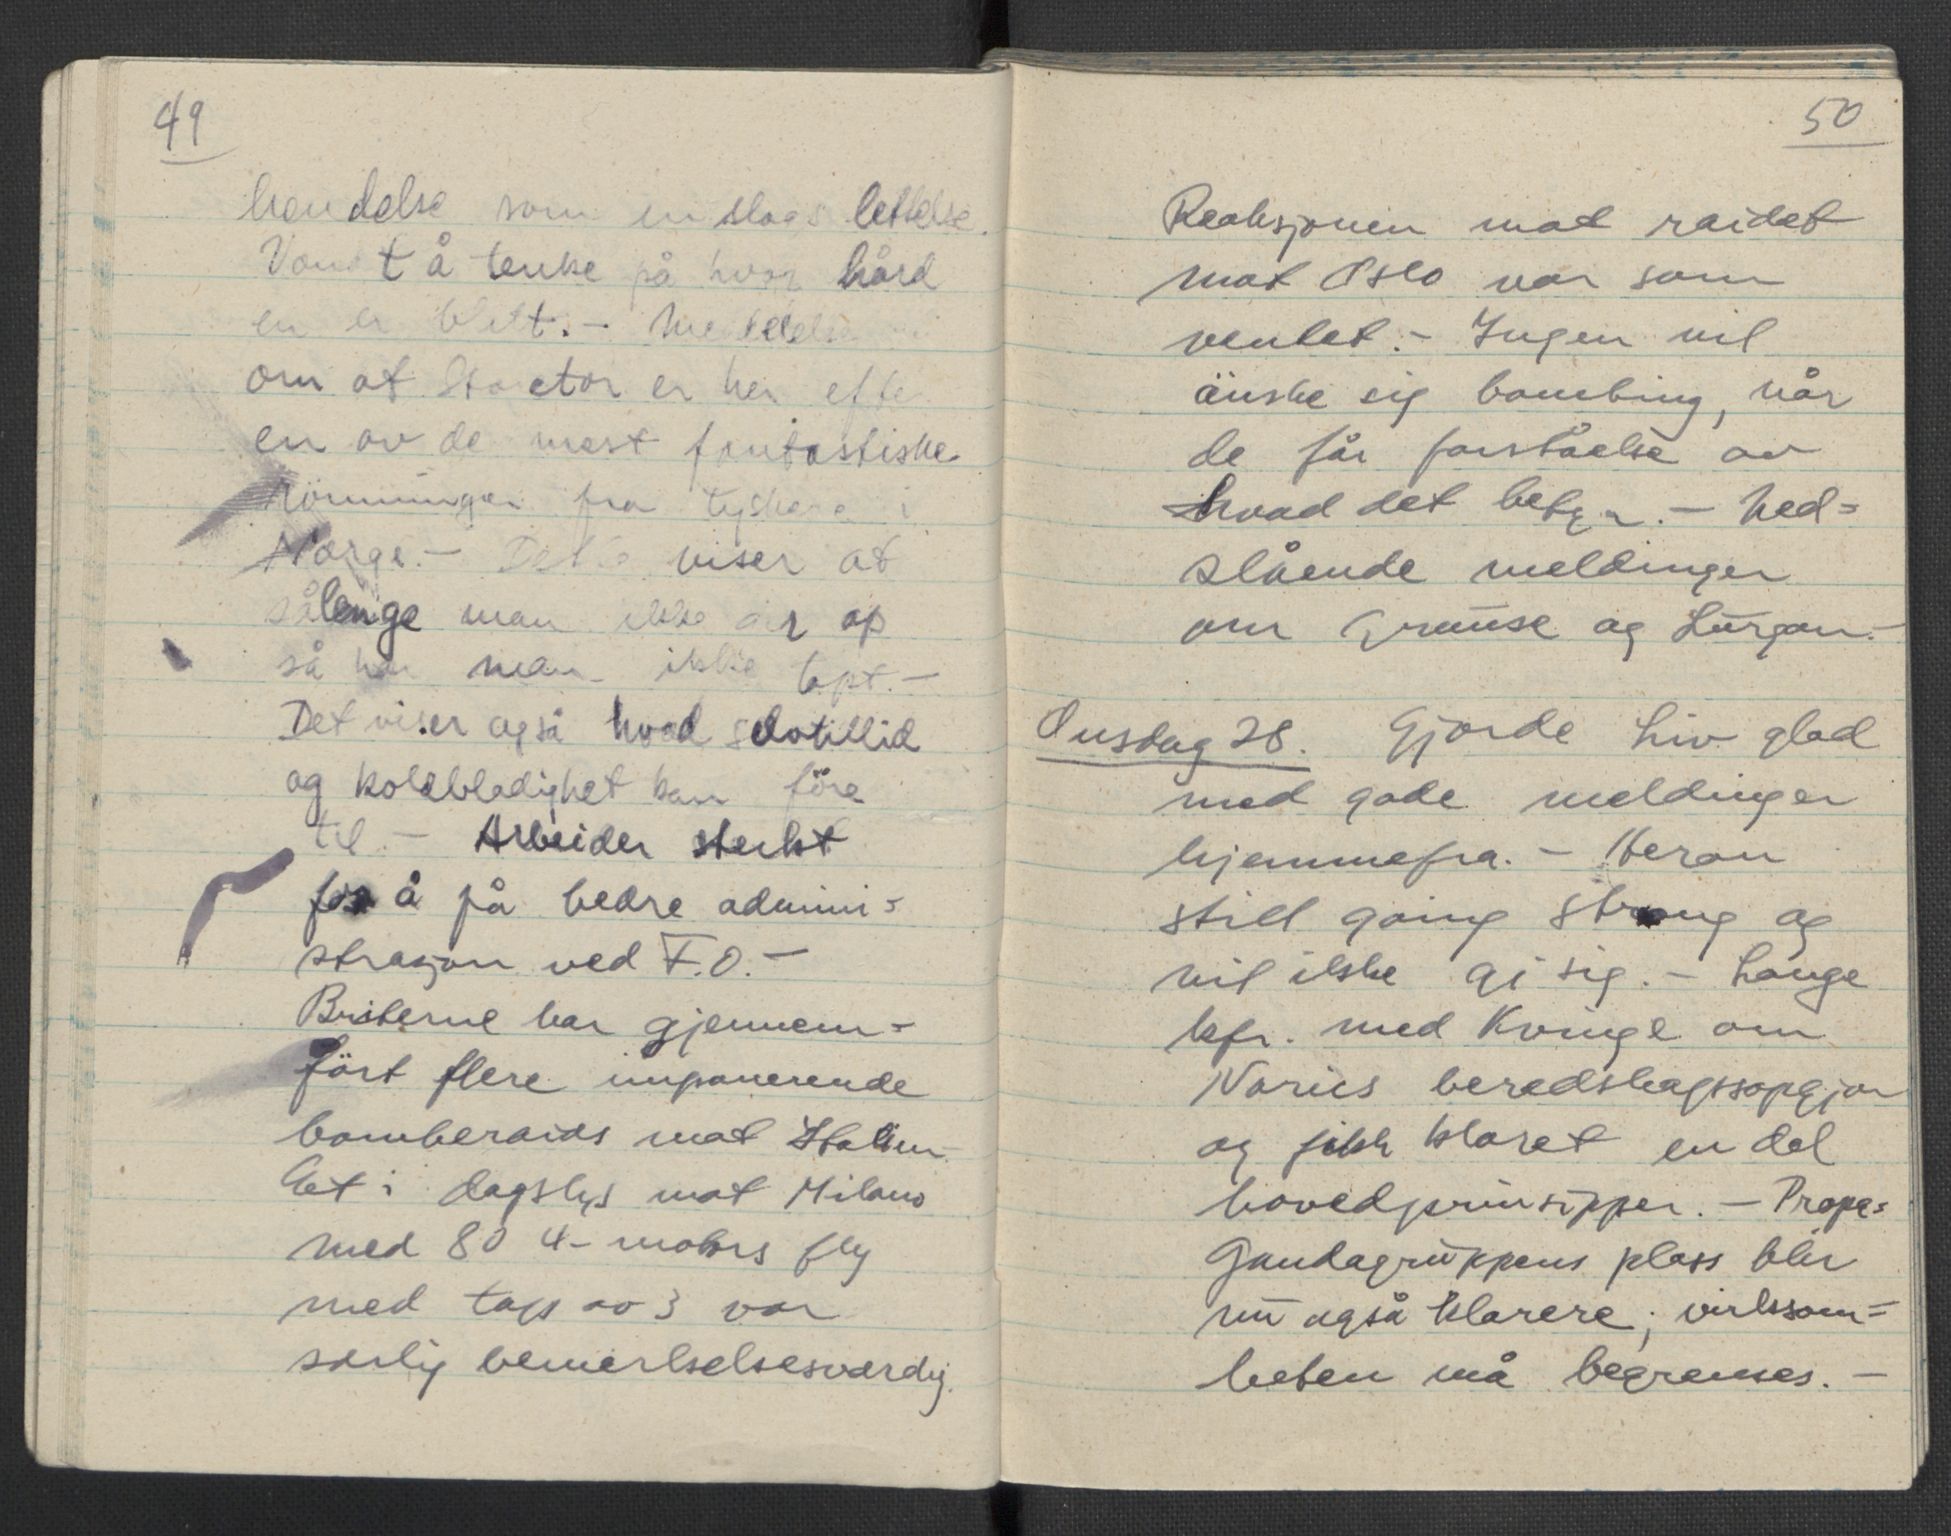 49
hendelse som en slags lettelse.
Vondt å tenke på hvor hård
en er blitt. - Meddelelse
om at Stoctor er her efter
en av de mest fantastiske
römninger fra tyskere i
Norge. - Dette viser at
sålenge man ikke gir op
så har man ikke tapt. -
Det viser også hvad selvtillid
og koldblodighet kan före
til. - Arbeider sterkt
for å få bedre admini=
strasjon ved F.O. -
Briterne har gjennem=
fört flere imponerende
bomberaids mot Italien.
Et i dagslys mot Milano
med 80 4-motors fly
med tap av 3 var
særlig bemerkelsesverdig.
50
Reaksjonen mot raidet
mot Oslo var som
ventet. - Ingen vil
önske sig bombing, når
de får forståelse av
hvad det betyr. - Ned=
slående meldinger
om Grouse og Lurgan. -
Onsdag 28. Gjorde Liv glad
med gode meldinger
hjemmefra. - Heron
still going strong og
vil ikke gi sig. - Lange
kfr. med Kvinge om
Norics beredskapsopgjör
og fikk klaret en del
hovedprinsipper. - Propa=
gandagruppens plass blir
nu også klarere; virksom=
heten må begrenses. -